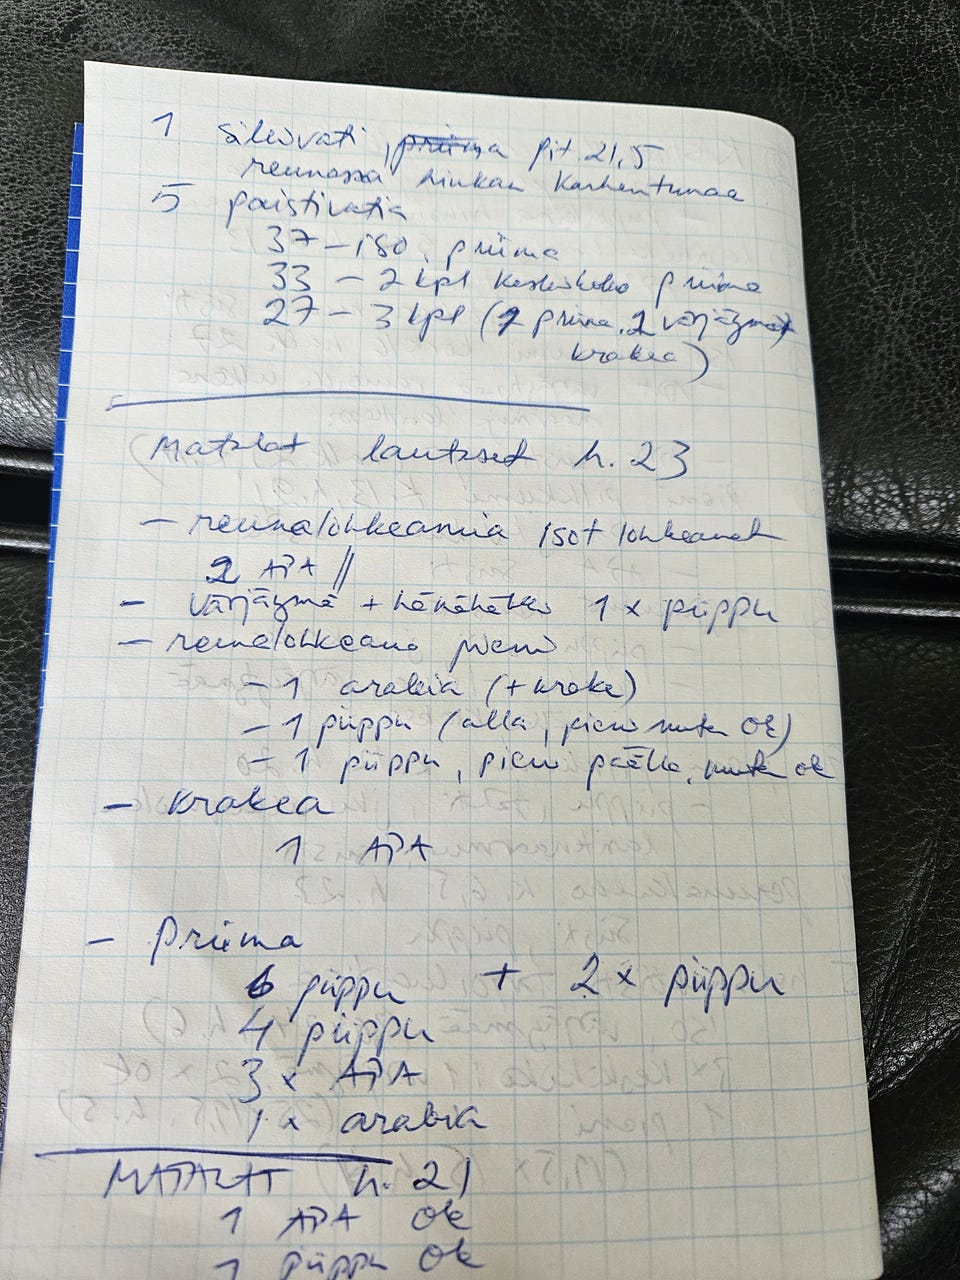 1 silevati, priima pit. 21,5
reunassa hiukan karhentumaa
5 paistivatia
37 – iso, priima
33 – 2 kpl keskikoko priima
27 – 3 kpl (1 priima, 2 värjäymät
krakea)
Matalat lautaset h. 23
– reunalohkeamia isot lohkeamat
2 APA ||
– värjäymä + hönöhötkö 1 x piippu
– reunalohkeama pieni
– 1 arabia (+ krake)
– 1 piippu (alla, pieni mutta ok)
– 1 piippu, pieni päällä, mutta ok
– krakea
1 APA
– Priima
6 piippu + 2 x piippu
4 piippu
3 x APA
1 x arabia
MATALAT h. 21
1 APA ok
1 piippu ok